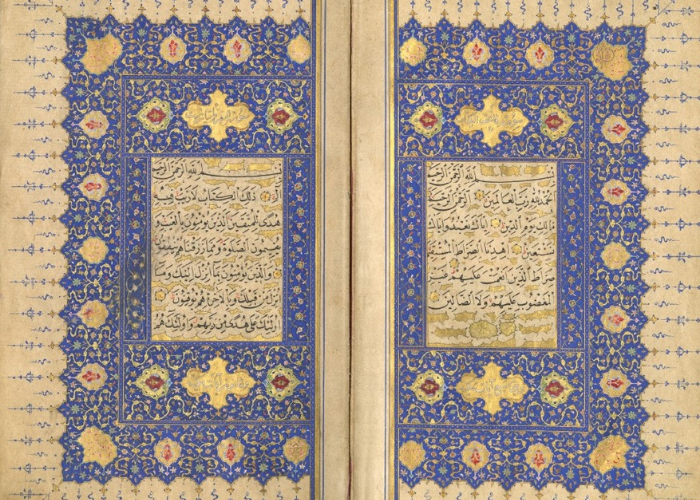 بِسْمِ اللهِ الرَّحْمٰنِ الرَّحِيمِ
الْحَمْدُ لِلّٰهِ رَبِّ الْعَالَمِينَ الرَّحْمٰنِ الرَّحِيمِ
مَالِكِ يَوْمِ الدِّينِ اِيَّاكَ نَعْبُدُ وَاِيَّاكَ
نَسْتَعِينُ اِهْدِنَا الصِّرَاطَ الْمُسْتَقِيمَ
صِرَاطَ الَّذِينَ اَنْعَمْتَ عَلَيْهِمْ غَيْرِ
الْمَغْضُوبِ عَلَيْهِمْ وَلَا الضَّالِّينَ
بِسْمِ اللهِ الرَّحْمٰنِ الرَّحِيمِ
ذٰلِكَ الْكِتَابُ لَا رَيْبَ فِيهِ
هُدًى لِلْمُتَّقِينَ الَّذِينَ يُؤْمِنُونَ بِالْغَيْبِ وَ
يُقِيمُونَ الصَّلٰوةَ وَمِمَّا رَزَقْنَاهُمْ يُنْفِقُونَ
وَالَّذِينَ يُؤْمِنُونَ بِمَا اُنْزِلَ اِلَيْكَ وَمَا
اُنْزِلَ مِنْ قَبْلِكَ وَبِالْاٰخِرَةِ هُمْ يُوقِنُونَ
اُولٰئِكَ عَلٰى هُدًى مِنْ رَبِّهِمْ وَاُولٰئِكَ هُمُ